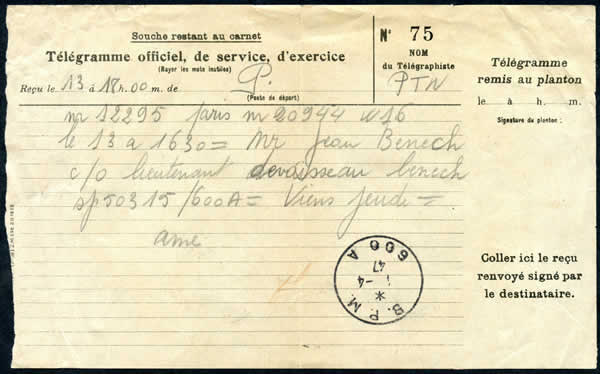 Souche restant au carnet
Télégramme officiel, de service, d'exercice
(Rayer les mots inutiles)
Reçu le 13 à 18 h. 00 m. de P.
(Poste de départ)
N° 75
NOM
du Télégraphiste
PTN
Télégramme
remis au planton
le à h. m.
Signature du planton :
nr 12295 paris nr 20944 w16
le 13 a 1630 = Mr Jean Benech
c/o lieutenant devaisseau benech
sp 50315/600A = Viens jeudi =
ame
B. P. M.
600 A
-4
47
Coller ici le reçu
renvoyé signé par
le destinataire.